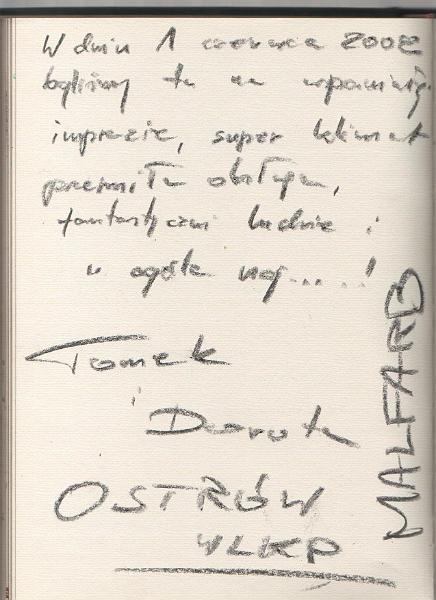 W dniu 1 czerwca 2002
byliśmy tu na wspaniałej
imprezie, super klimat
przemiła obsługa,
fantastyczni ludzie i
w ogóle naj.....!
Tomek
i
Dorota
OSTRÓW
WLKP
MALFARB